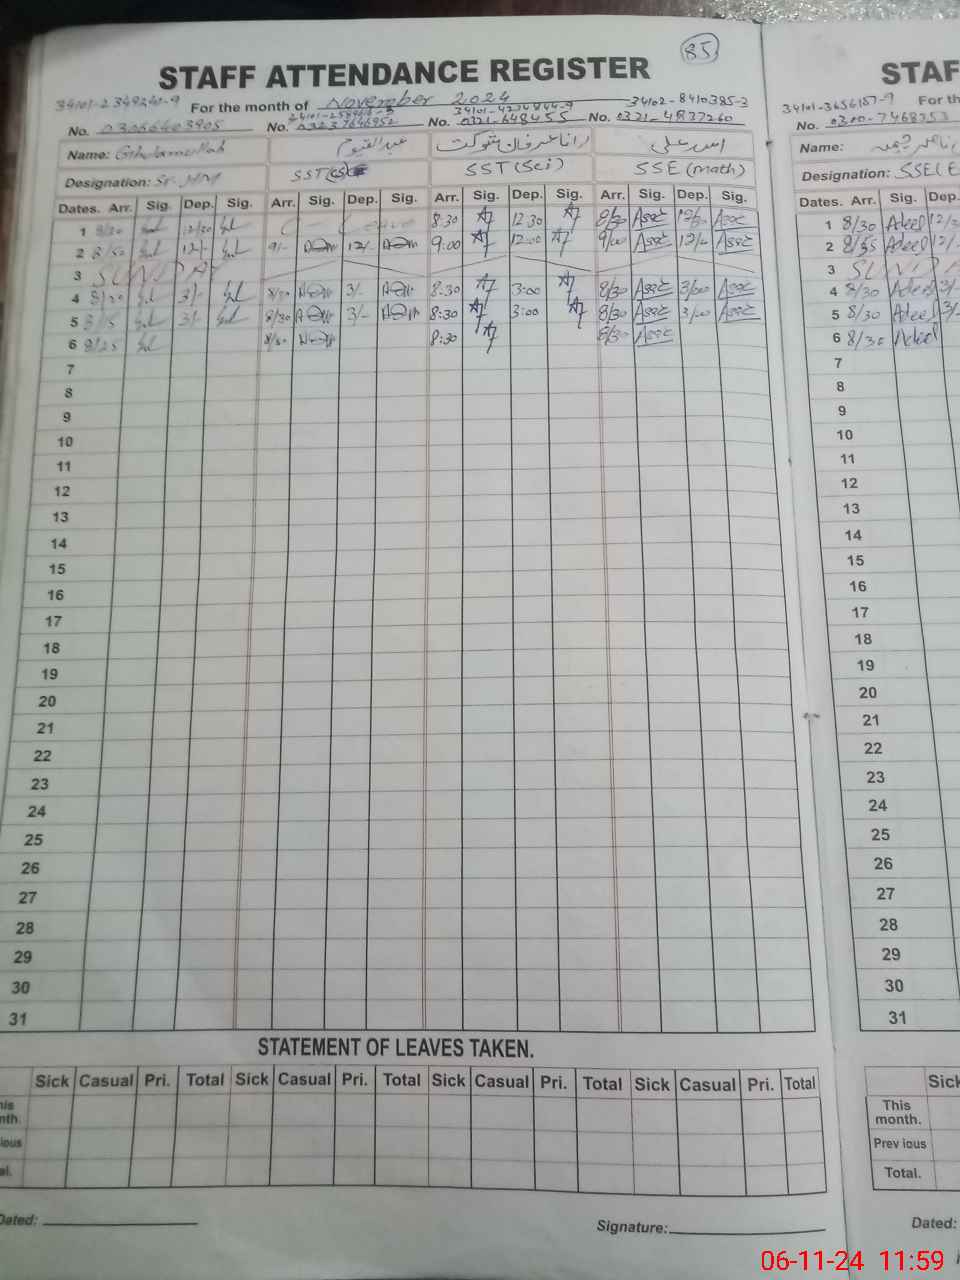 85
STAFF ATTENDANCE REGISTER
34101-2349240-9 For the month of November 2024 34101-4234844-9 34102-8410385-3
No. 03066403905 No. 03237646952 No. 0321-648455 No. 0321-4837260
Name: Ghulamullah عبدالقیوم رانا عرفان شوکت اسد علی
Designation: Sr. HM SST(CS) SST(Sci) SSE(math)
Dates. Arr. Sig. Dep. Sig. Arr. Sig. Dep. Sig. Arr. Sig. Dep. Sig. Arr. Sig. Dep. Sig.
1 8/20 12/30 C-Leave 8:30 12:30 8/30 Asad 12/30 Asad
2 8/50 12/- 9/- 12/- 9:00 12:00 9/00 Asad 12/- Asad
3 SUNDAY
4 8/20 3/- 8/30 3/- 8:30 3:00 8/30 Asad 3/00 Asad
5 8/15 3/- 8/30 3/- 8:30 3:00 8/30 Asad 3/00 Asad
6 8/25 8/30 8:30 8/30 Asad
7
8
9
10
11
12
13
14
15
16
17
18
19
20
21
22
23
24
25
26
27
28
29
30
31
STATEMENT OF LEAVES TAKEN.
Sick Casual Pri. Total Sick Casual Pri. Total Sick Casual Pri. Total Sick Casual Pri. Total
his
nth.
ious
al.
Dated: Signature:
STAF
34101-3656187-9 For th
No. 0300-7468353
Name:
Designation: SSE(E
Dates. Arr. Sig. Dep.
1 8/30 Adeel 12/3
2 8/55 Adeel 12/-
3 SUND
4 8/30 Adeel 3/-
5 8/30 Adeel 3/-
6 8/30 Adeel
7
8
9
10
11
12
13
14
15
16
17
18
19
20
21
22
23
24
25
26
27
28
29
30
31
Sick
This
month.
Prev ious
Total.
Dated:
06-11-24 11:59